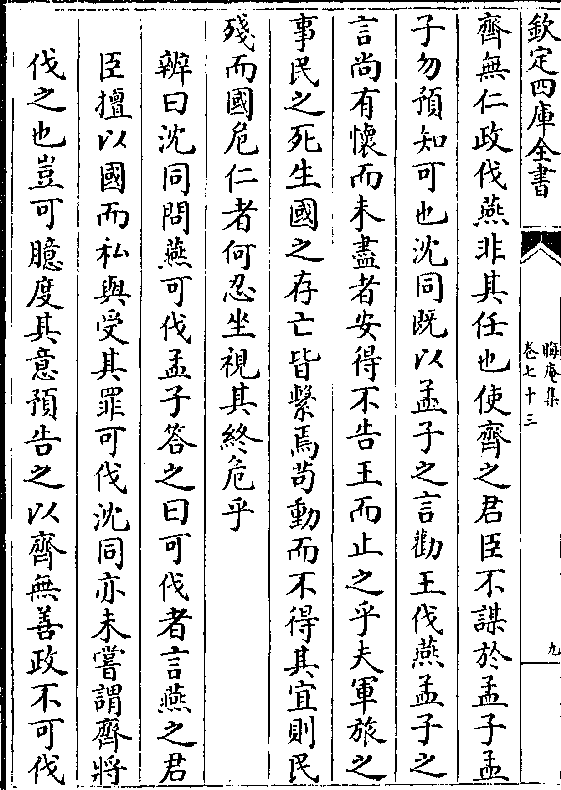 欽定四庫全書
晦庵集
卷七十三
九
齊無仁政伐燕非其任也使齊之君臣不謀於孟子孟
子勿預知可也沈同既以孟子之言勸王伐燕孟子之
言尚有懷而未盡者安得不告王而止之乎夫軍旅之
事民之死生國之存亡皆繫焉苟動而不得其宜則民
殘而國危仁者何忍坐視其終危乎
辨曰沈同問燕可伐孟子答之曰可伐者言燕之君
臣擅以國而私與受其罪可伐沈同亦未嘗謂齊將
伐之也豈可臆度其意預告之以齊無善政不可伐